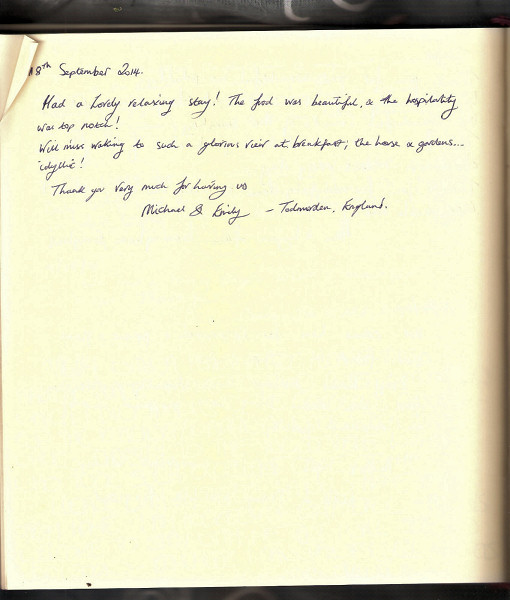 18th September 2014.
Had a Lovely relaxing stay! The food was beautiful, & the hospitality
was top notch!
Will miss waking to such a glorious view at breakfast; the house & gardens...
idyllic!
Thank you very much for having us
Michael & Emily – Todmorden, England.